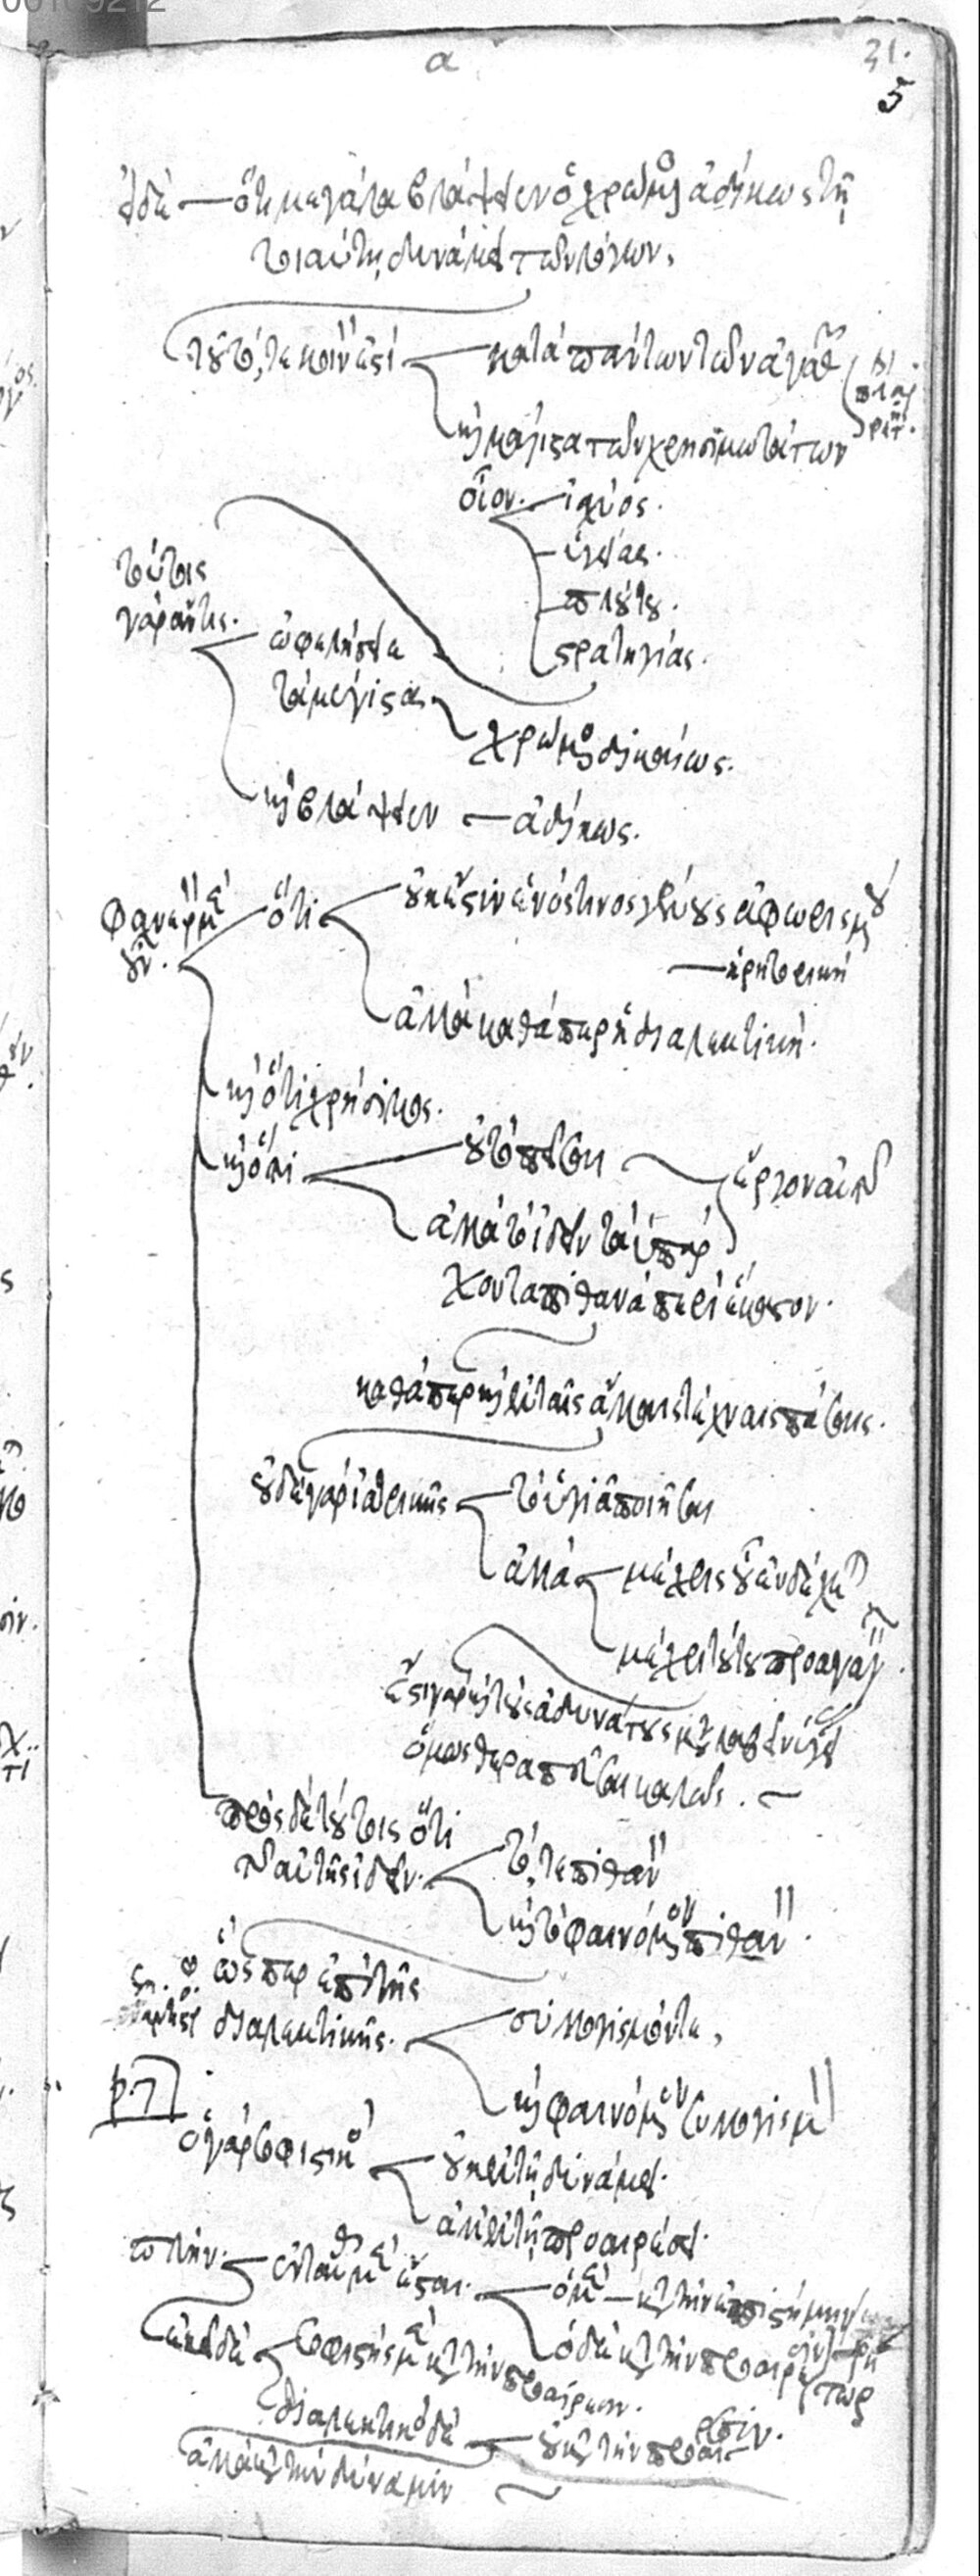 α
31.
5
εἰ δὲ — ὅτι μεγάλα βλάψειεν ὁ χρώμενος ἀδίκως τῇ
τοιαύτῃ δυνάμει τῶν λόγων,
τοῦτό, τε κοινόν ἐστι — κατὰ πάντων τῶν ἀγαθῶν
πλὴν ἀρετῆς.
καὶ μάλιστα τῶν χρησιμωτάτων
οἷον. — ἰσχύος.
ὑγείας.
πλούτου.
στρατηγίας.
τούτοις
γὰρ ἄν τις.
ὠφελήσειε
τὰ μέγιστα.
χρώμενος δικαίως.
καὶ βλάψειεν — ἀδίκως.
φανερὸν μὲν
οὖν.
ὅτι — οὐκ ἔστιν ἑνός τινος γένους ἀφωρισμένου
— ἡ ῥητορική
ἀλλὰ καθάπερ ἡ διαλεκτική.
καὶ ὅτι χρήσιμος.
καὶ ὅτι — οὐ τὸ πεῖσαι
ἔργον αὐτῆς
ἀλλὰ τὸ ἰδεῖν τὰ ὑπάρ
χοντα πιθανὰ περὶ ἕκαστον.
καθάπερ καὶ ἐν ταῖς ἄλλαις τέχναις πάσαις.
οὐδὲ γὰρ ἰατρικῆς — τὸ ὑγιᾶ ποιῆσαι
ἀλλὰ — μέχρις οὗ ἐνδέχεται
μέχρι τούτου προαγαγεῖν.
ἔστι γὰρ καὶ τοὺς ἀδυνάτους μεταλαβεῖν ὑγείας
ὅμως θεραπεῦσαι καλῶς.
πρὸς δὲ τούτοις ὅτι
τῆς αὐτῆς ἰδεῖν.
τό, τε πιθανὸν
καὶ τὸ φαινόμενον πιθανόν.
ὥσπερ ἐπὶ τῆς
διαλεκτικῆς.
συλλογισμόν τε,
καὶ φαινόμενον συλλογισμὸν
p. 7
ὁ γὰρ σοφιστικὸς
οὐκ ἐν τῇ δυνάμει.
ἀλλ' ἐν τῇ προαιρέσει.
πλὴν.
ἐνταῦθα μὲν ἔσται.
ὁ μὲν — κατὰ τὴν ἐπιστήμην
ὁ δὲ κατὰ τὴν προαίρε
σιν.
ῥή
τωρ
ἐκεῖ δὲ
σοφιστὴς μὲν κατὰ τὴν προαίρεσιν.
διαλεκτικὸς δὲ — οὐ κατὰ τὴν προαί
ρεσιν.
ἀλλὰ κατὰ τὴν δύναμιν